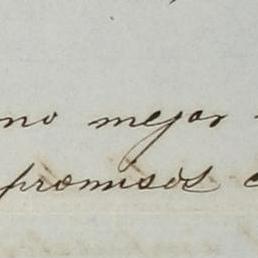 no mejor
promisos